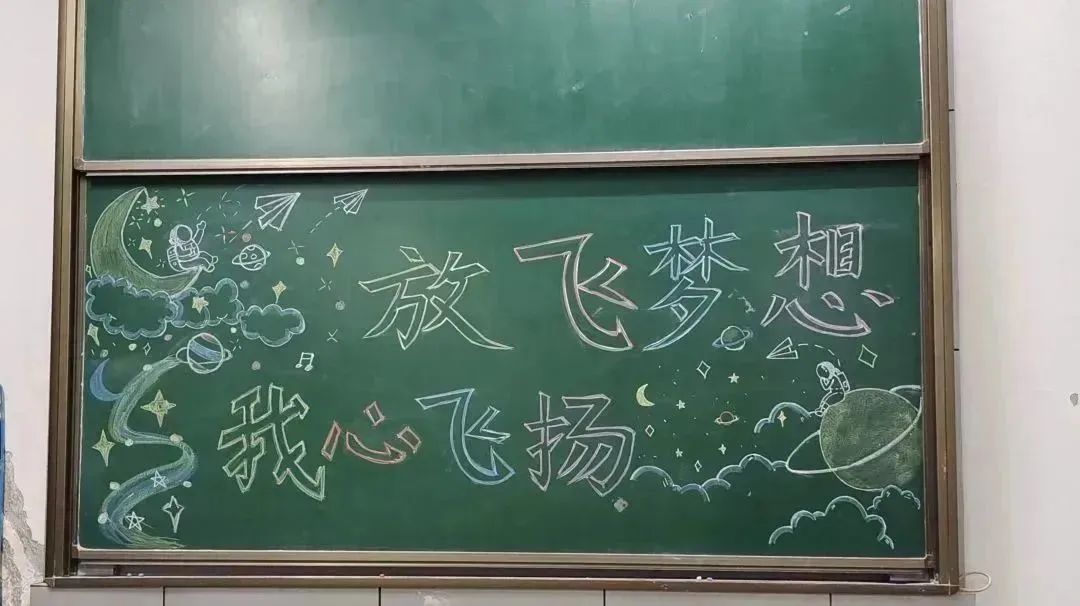 放飞梦想
我心飞扬